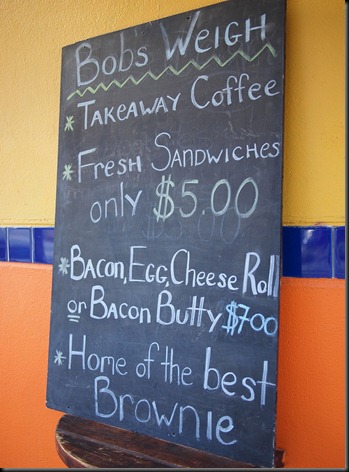 Bobs Weigh
* Takeaway Coffee
* Fresh Sandwiches
only $5.00
* Bacon, Egg, Cheese Roll
or Bacon Butty $7.00
* Home of the best
Brownie